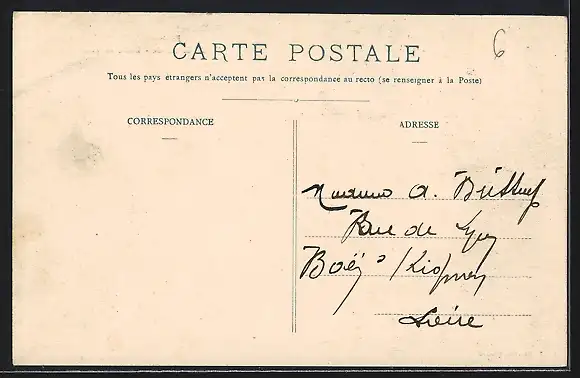 6
CARTE POSTALE
Tous les pays étrangers n'acceptent pas la correspondance au recto (se renseigner à la Poste)
CORRESPONDANCE
ADRESSE
A.
Rue de
Loire